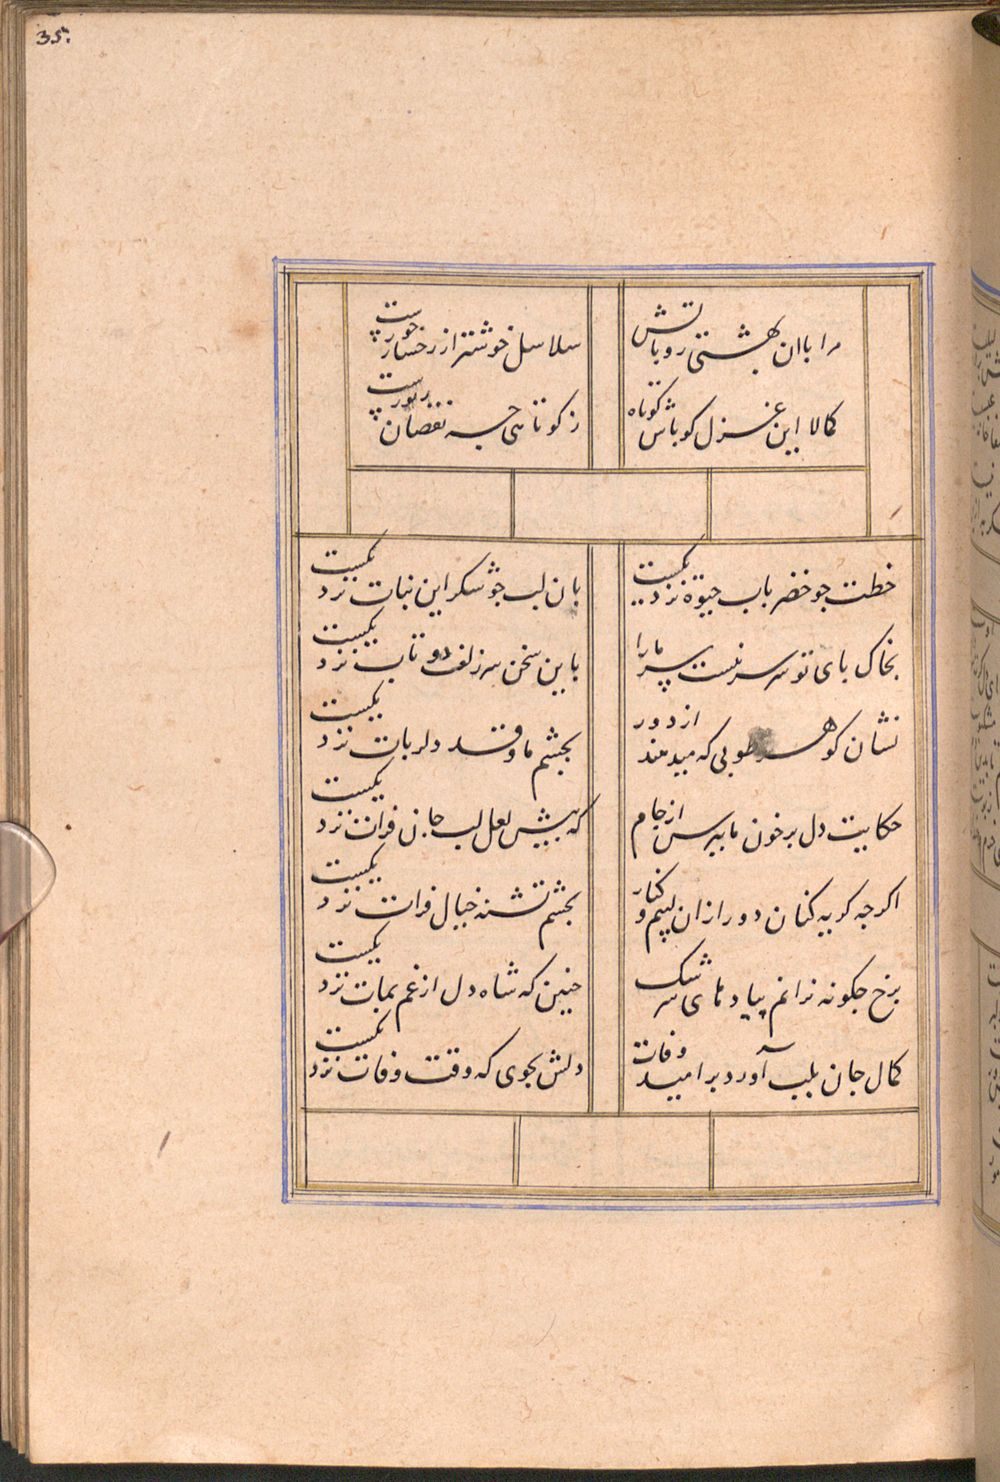 35.
مرا باان بهشتی رو باتش
سلاسل خوشتر از رخسار حورست
کمالا این غزل کو باش کوتاه
ز کوتاهی چه نقصان زنورست
خطت جو خضر باب حیوة نزدیکست
بان لب جو شکر این نبات نزدیکست
بخاک بای تو سر نیست سر مارا
باین سخن سر زلف دو تات نزدیکست
نشان کوهر طوبی که میدهند از دور
بجشم ما و قد دلربات نزدیکست
حکایت دل برخون ما ببرس از جام
که بیش لعل لب جان فزات نزدیکست
اکرجه کریه کنان دور ازان لبیم و کنار
بجشم تشنه خیال فرات نزدیکست
برخ جکونه نرانم پیادهای سرشک
جنین که شاه دل از غم بمات نزدیکست
کمال جان بلب آورد بر امید وفات
دلش بجوی که وقت وفات نزدیکست